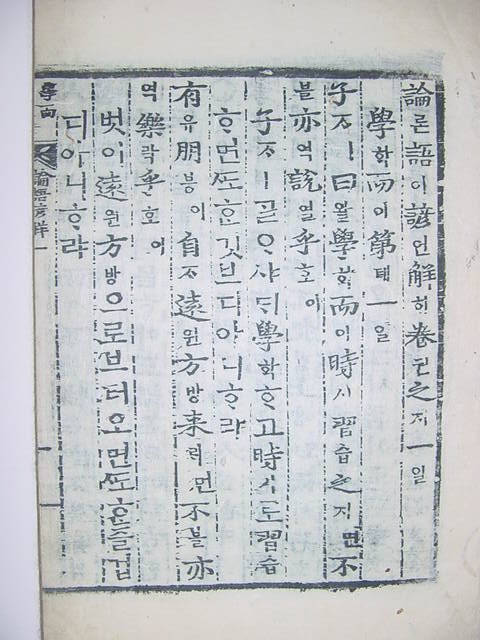 論론語어諺언解ᄒᆡ卷권之지一일
學ᄒᆞᆨ而이第뎨一일
子ᄌᆞㅣ曰왈學ᄒᆞᆨ而이時시習습之지면不
블亦역說열乎호아
子ᄌᆞㅣᄀᆞᆯᄋᆞ샤ᄃᆡ學ᄒᆞᆨᄒᆞ고時시로習습
ᄒᆞ면ᄯᅩᄒᆞᆫ깃브디아니ᄒᆞ랴
有유朋붕이自ᄌᆞ遠원方방来ᄅᆡ면不블亦
역樂락乎호아
벗이遠원方방으로브터오면ᄯᅩᄒᆞᆫ즐겁
디아니ᄒᆞ랴
學而 論語諺解 一